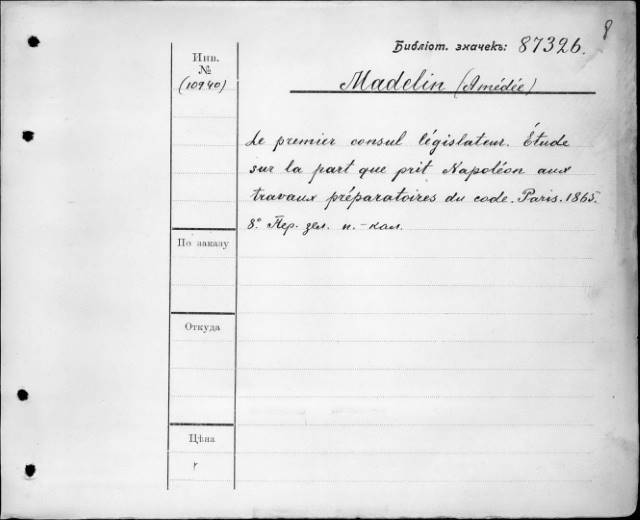 8
Библіот. значекъ: 87326.
Инв.
№
(10940)
Madelin (Amédée)
Le premier consul législateur. Étude
sur la part que prit Napoléon aux
travaux préparatoires du code. Paris. 1865.
8º Пер. зел. п.-кол.
По заказу
Откуда
Цѣна